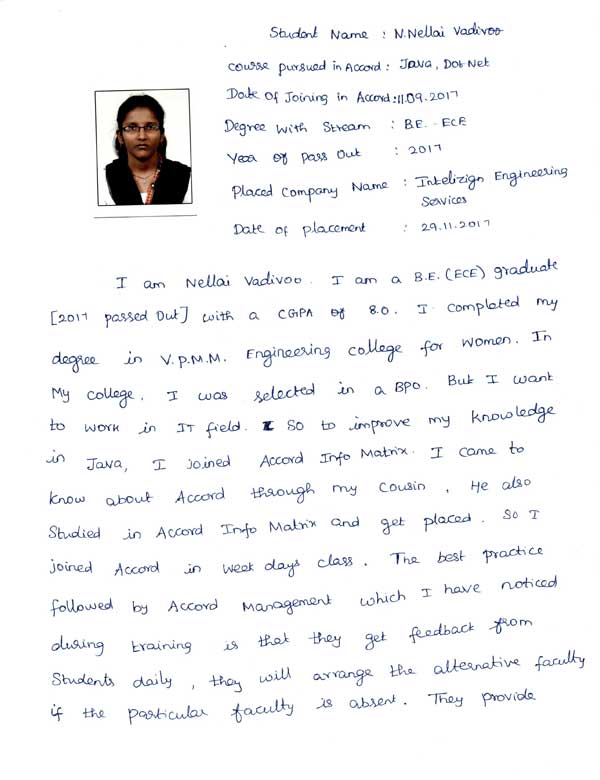 Student Name : N.Nellai Vadivoo
course pursued in Accord : Java, Dot Net
Date Of Joining in Accord : 11.09.2017
Degree With Stream : B.E. - ECE
Year of pass out : 2017
Placed Company Name : Intelizign Engineering
Services
Date of placement : 29.11.2017
I am Nellai Vadivoo. I am a B.E. (ECE) graduate
[2017 passed Out] with a CGPA of 8.0. I completed my
degree in V.P.M.M. Engineering college for Women. In
My college, I was selected in a BPO. But I want
to work in IT field. So to improve my knowledge
in Java, I joined Accord Info Matrix. I came to
know about Accord through my cousin, He also
Studied in Accord Info Matrix and get placed. So I
joined Accord in week days class. The best practice
followed by Accord Management which I have noticed
during training is that they get feedback from
Students daily, they will arrange the alternative faculty
if the particular faculty is absent. They provide